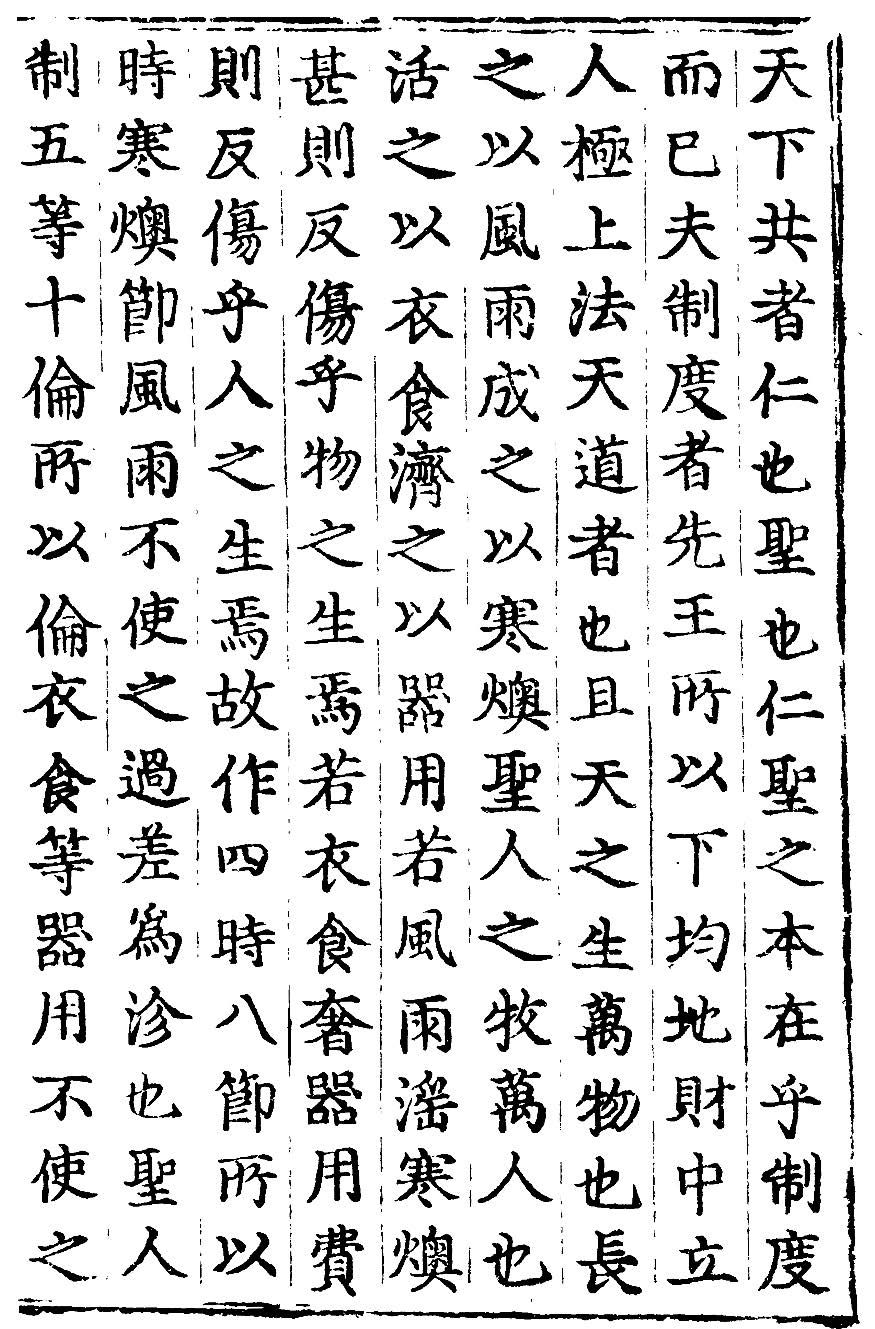 天下共者仁也聖也仁聖之本在乎制度
而已夫制度者先王所以下均地財中立
人極上法天道者也且天之生萬物也長
之以風雨成之以寒燠聖人之牧萬人也
活之以衣食濟之以器用若風雨滛寒燠
甚則反傷乎物之生焉若衣食奢器用費
則反傷乎人之生焉故作四時八節所以
時寒燠節風雨不使之過差為沴也聖人
制五等十倫所以倫衣食等器用不使之